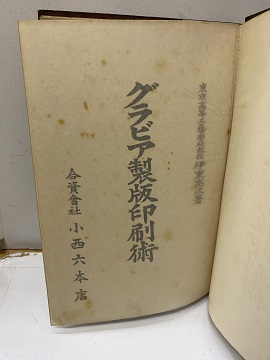 東京高等工藝學校教授 伊東亮次著
グラビア製版印刷術
合資會社 小西六本店